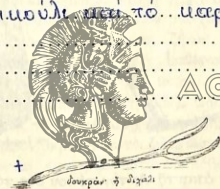 κούλι καὶ τὸ καρ
ΑΘ
δουκράν ἢ διχάλι